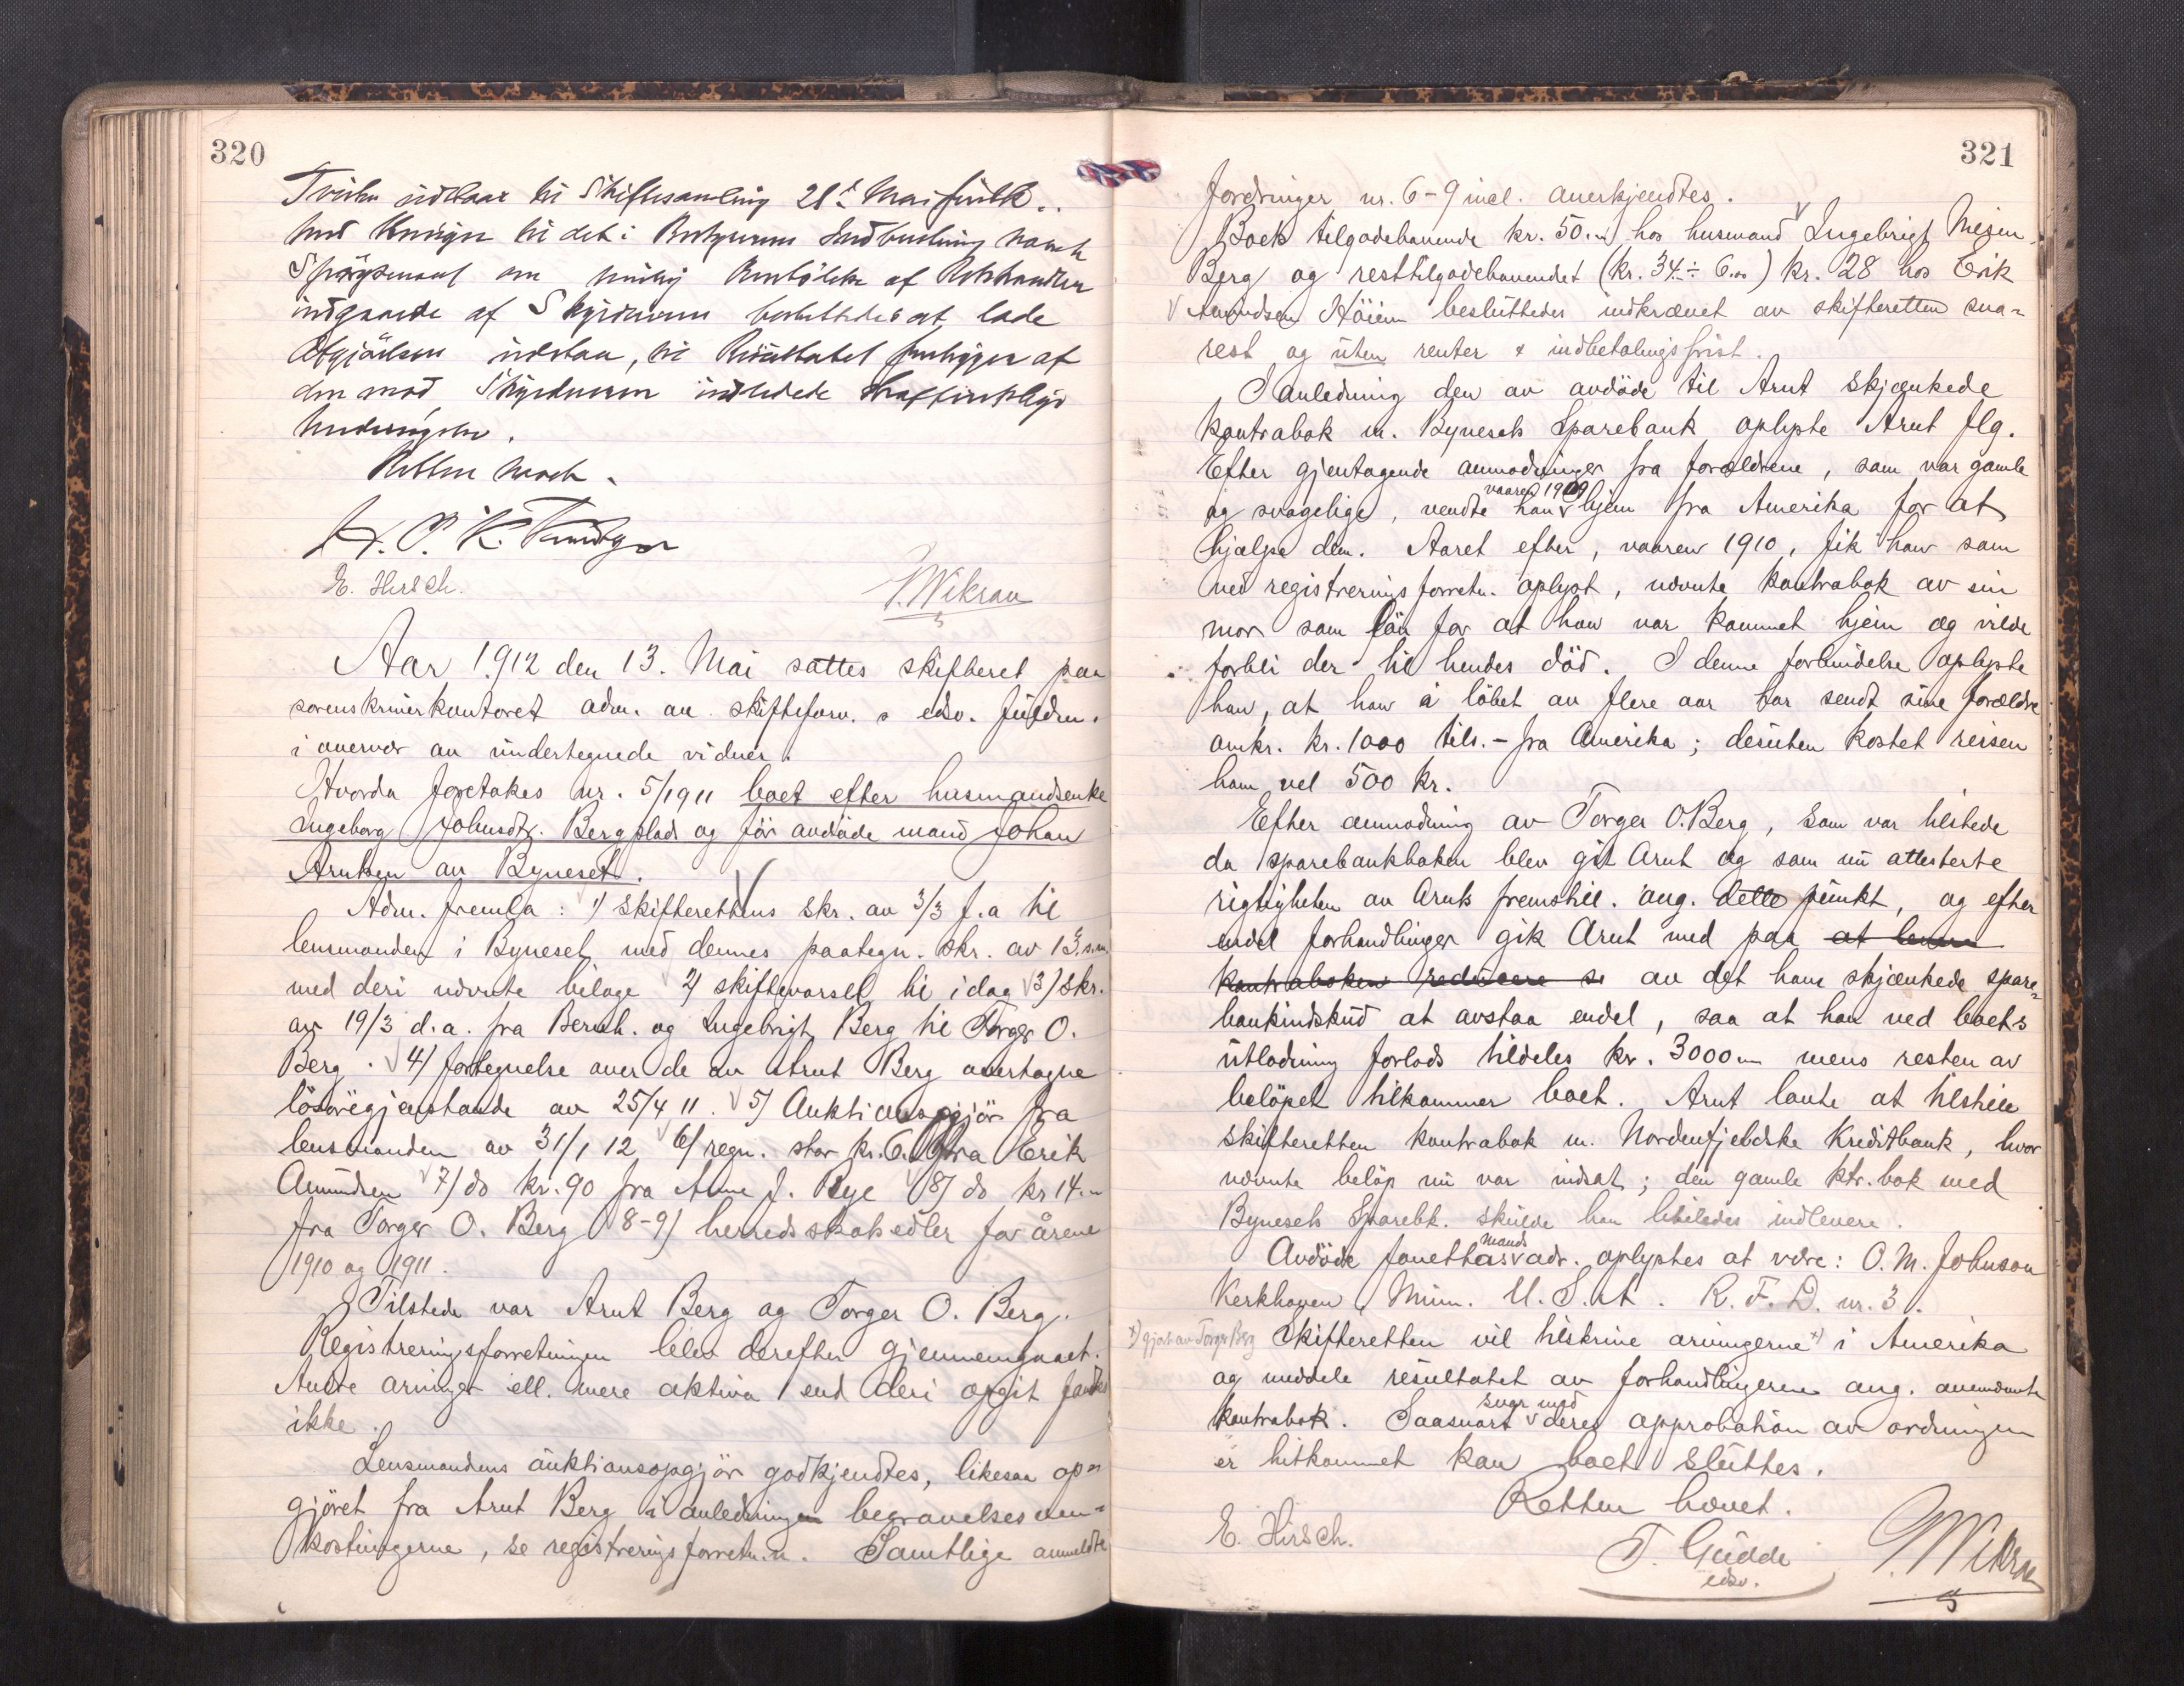 320
Tvisten udstaar til Skiftesamling 21de Mai
hævet
Spørgsmaal om af
indgaaede af Skyldneren besluttedes at lade
Afgjørelsen udstaa, til Resultatet foreligger af
den mod Skyldneren indledede strafferetslige
Undersøgelse.
Retten hævet.
E. Hirsch.
J. Wikran
Aar 1912 den 13. Mai sattes skifteret paa
sorenskriverkontoret adm. av skifteforv. s edsv. fuldm.
i overvær av undertegnede vidner.
Hvorda foretokes nr. 5/1911 boet efter husmandsenke
Ingeborg Johnsdtr. Bergplads og før avdøde mand Johan
Arntsen av Byneset.
Adm. fremla: 1) skifterettens skr. av 3/3 f.a til
lensmanden i Byneset med dennes paategn. skr. av 13. s.m.
med deri nævnte bilage 2) skiftevarsel til idag 3) skr.
av 19/3 d.a. fra Bernh. og Ingebrigt Berg til Torger O.
Berg. 4) fortegnelse over de av Arnt Berg overtagne
løsøregjenstande av 25/4 11. 5) Auktionsopgjør fra
lensmanden av 31/1 12 6) regn. stor kr. 6.00 fra Erik
Amundsen 7) do kr. 90 fra Arne J. Rye 8) do kr 14.00
fra Torger O. Berg 8-9) herredsskatsedler for årene
1910 og 1911.
Tilstede var Arnt Berg og Torger O. Berg.
Registreringsforretningen blev derefter gjennemgaaet.
Andre arvinger ell. mere aktiva end deri opgit fandtes
ikke.
Lensmandens auktionsopgjør godkjendtes, likesaa op=
gjøret fra Arnt Berg i anledningen begravelsesom=
kostningerne, se registreringsforretn.n. Samtlige anmeldte
321
fordringer nr. 6-9 incl. anerkjendtes.
Boets tilgodehavende kr. 50.00 hos husmand Ingebrigt
Berg og resttilgodehavendet (kr. 34 ÷ 6.00) kr. 28 hos Erik
Amundsen Höiem besluttedes indkrævet av skifteretten sna=
rest og uten renter & indbetalingsfrist.
I anledning den av avdöde til Arnt skjænkede
kontrabok m. Bynesets Sparebank oplyste Arnt flg.
Efter gjentagende anmodninger fra forældrene, som var gamle
og svagelige, vendte han vaaren 1909 hjem fra Amerika for at
hjælpe dem. Aaret efter, vaaren 1910, fik han som
ved registreringsforretn. oplyst, nævnte kontrabok av sin
mor som løn for at han var kommet hjem og vilde
forbli der til hendes död. I denne forbindelse oplyste
han, at han i löbet av flere aar har sendt sine forældre
omkr. kr. 1000 tils. - fra Amerika; desuten kostet reisen
ham vel 500 kr.
Efter anmodning av Torger O. Berg, som var tilstede
da sparebankboken blev git Arnt og som nu attesterte
rigtigheten av Arnts fremstill. ang. dette punkt, og efter
endel forhandlinger gik Arnt med paa at levere
kontraboken reducere s av det ham skjænkede spare=
bankindskud at avstaa endel, saa at han ved boets
utlodning forlods tildeles kr. 3000.00 mens resten av
belöpet tilkommer boet. Arnt lovte at tilstille
skifteretten kontrabok m. Nordenfjeldske Kreditbank, hvor
nævnte belöp nu var indsat; den gamle ktr.bok med
Bynesets Sparebk. skulde han likeledes indlevere.
Avdöde Jonettas mands adr. oplystes at være: O. M. Johnson
Kerkhoven, Minn. U.S.A. R.F.D. nr. 3.
x) gjort av Torger Berg Skifteretten vil tilskrive arvingerne x) i Amerika
og meddele resultatet av forhandlingerne ang. omnævnte
kontrabok. Saasnart svar med deres approbation av ordningen
er hitkommet kan boet sluttes.
Retten hævet.
E. Hirsch.
T. Gudde
edsv.
J. Wikran